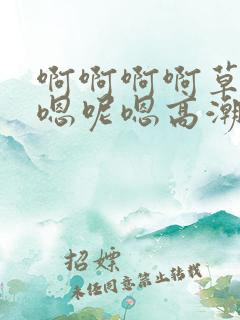 啊啊啊啊草
嗯呢嗯高潮
招嫖
未经同意禁止转载